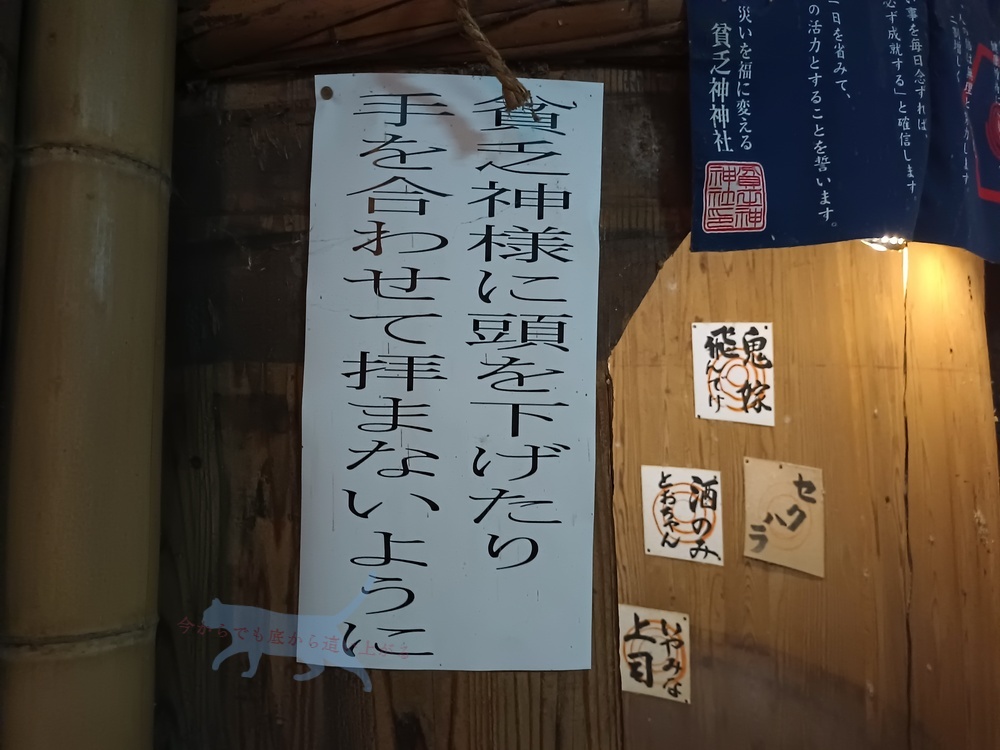 貧乏神様に頭を下げたり
手を合わせて拝まないように
事を毎日念ずれば、
必ず成就する」と確信します
一日を省みて、
の活力とすることを誓います。
災いを福に変える
貧乏神神社
貧乏神
神社印
鬼嫁
飛んでけ
酒のみ
とおちゃん
セク
ハラ
いやみな
上司
今からでも底から這い上がる